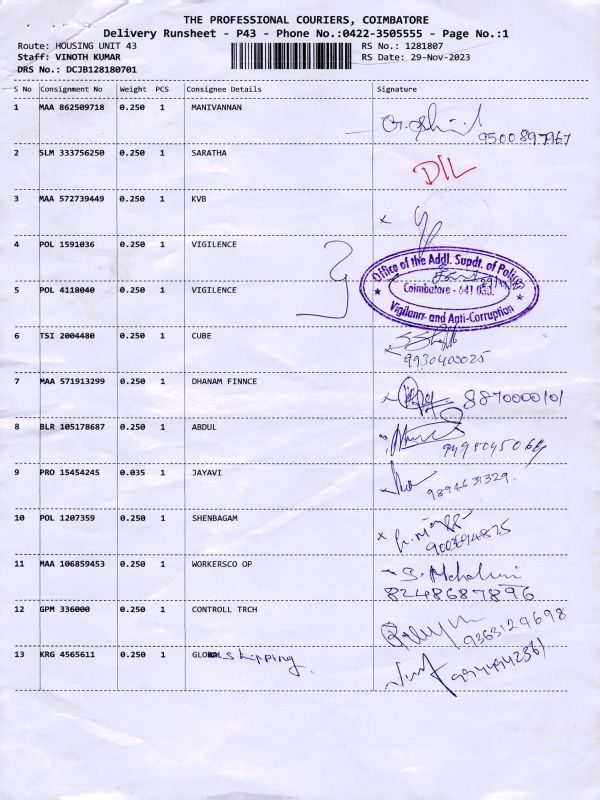 THE PROFESSIONAL COURIERS, COIMBATORE
Delivery Runsheet - P43 - Phone No.:0422-3505555 - Page No.:1
Route: HOUSING UNIT 43 RS No.: 1281807
Staff: VINOTH KUMAR RS Date: 29-Nov-2023
DRS No.: DCJB128180701
S No Consignment No Weight PCS Consignee Details Signature
1 MAA 862509718 0.250 1 MANIVANNAN
9500897967
2 SLM 333756250 0.250 1 SARATHA
DIL
3 MAA 572739449 0.250 1 KVB
4 POL 1591036 0.250 1 VIGILENCE
Office of the Addl. Supdt. of Police
5 POL 4118040 0.250 1 VIGILENCE
Coimbatore - 641 033.
and Anti-Corruption
6 TSI 2004480 0.250 1 CUBE
9930400025
7 MAA 571913299 0.250 1 DHANAM FINNCE
8870000101
8 BLR 105178687 0.250 1 ABDUL
9 PRO 15454245 0.035 1 JAYAVI
9894631329
10 POL 1207359 0.250 1 SHENBAGAM
11 MAA 106859453 0.250 1 WORKERSCO OP
8248687896
12 GPM 336000 0.250 1 CONTROLL TRCH
9363129698
13 KRG 4565611 0.250 1 GLOBAL shipping.